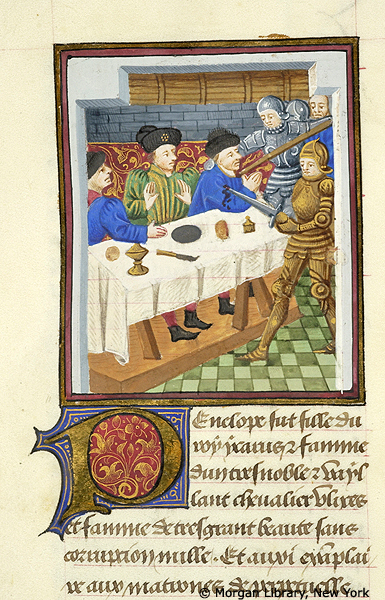 Penelope fut fille du
roy ycarus ⁊ famme
dun tresnoble ⁊ vayl
lant chevalier vlixes
et famme de tresgrant beaute sans
corrupcion nulle. Et aussi exemplai
re aux matrones de perpetuelle
© Morgan Library, New York